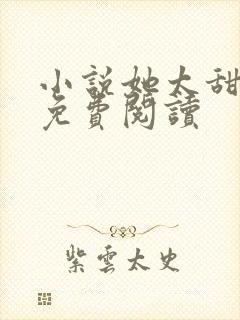 小說她太甜
免費閱讀
紫雲太史